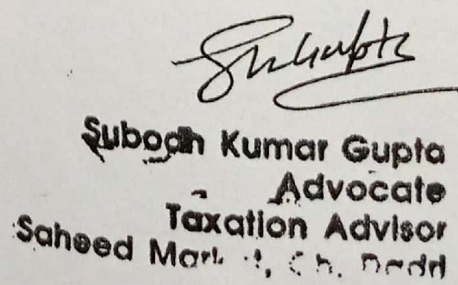 SKGupta
Subodh Kumar Gupta
Advocate
Taxation Advisor
Saheed Market, Ch.